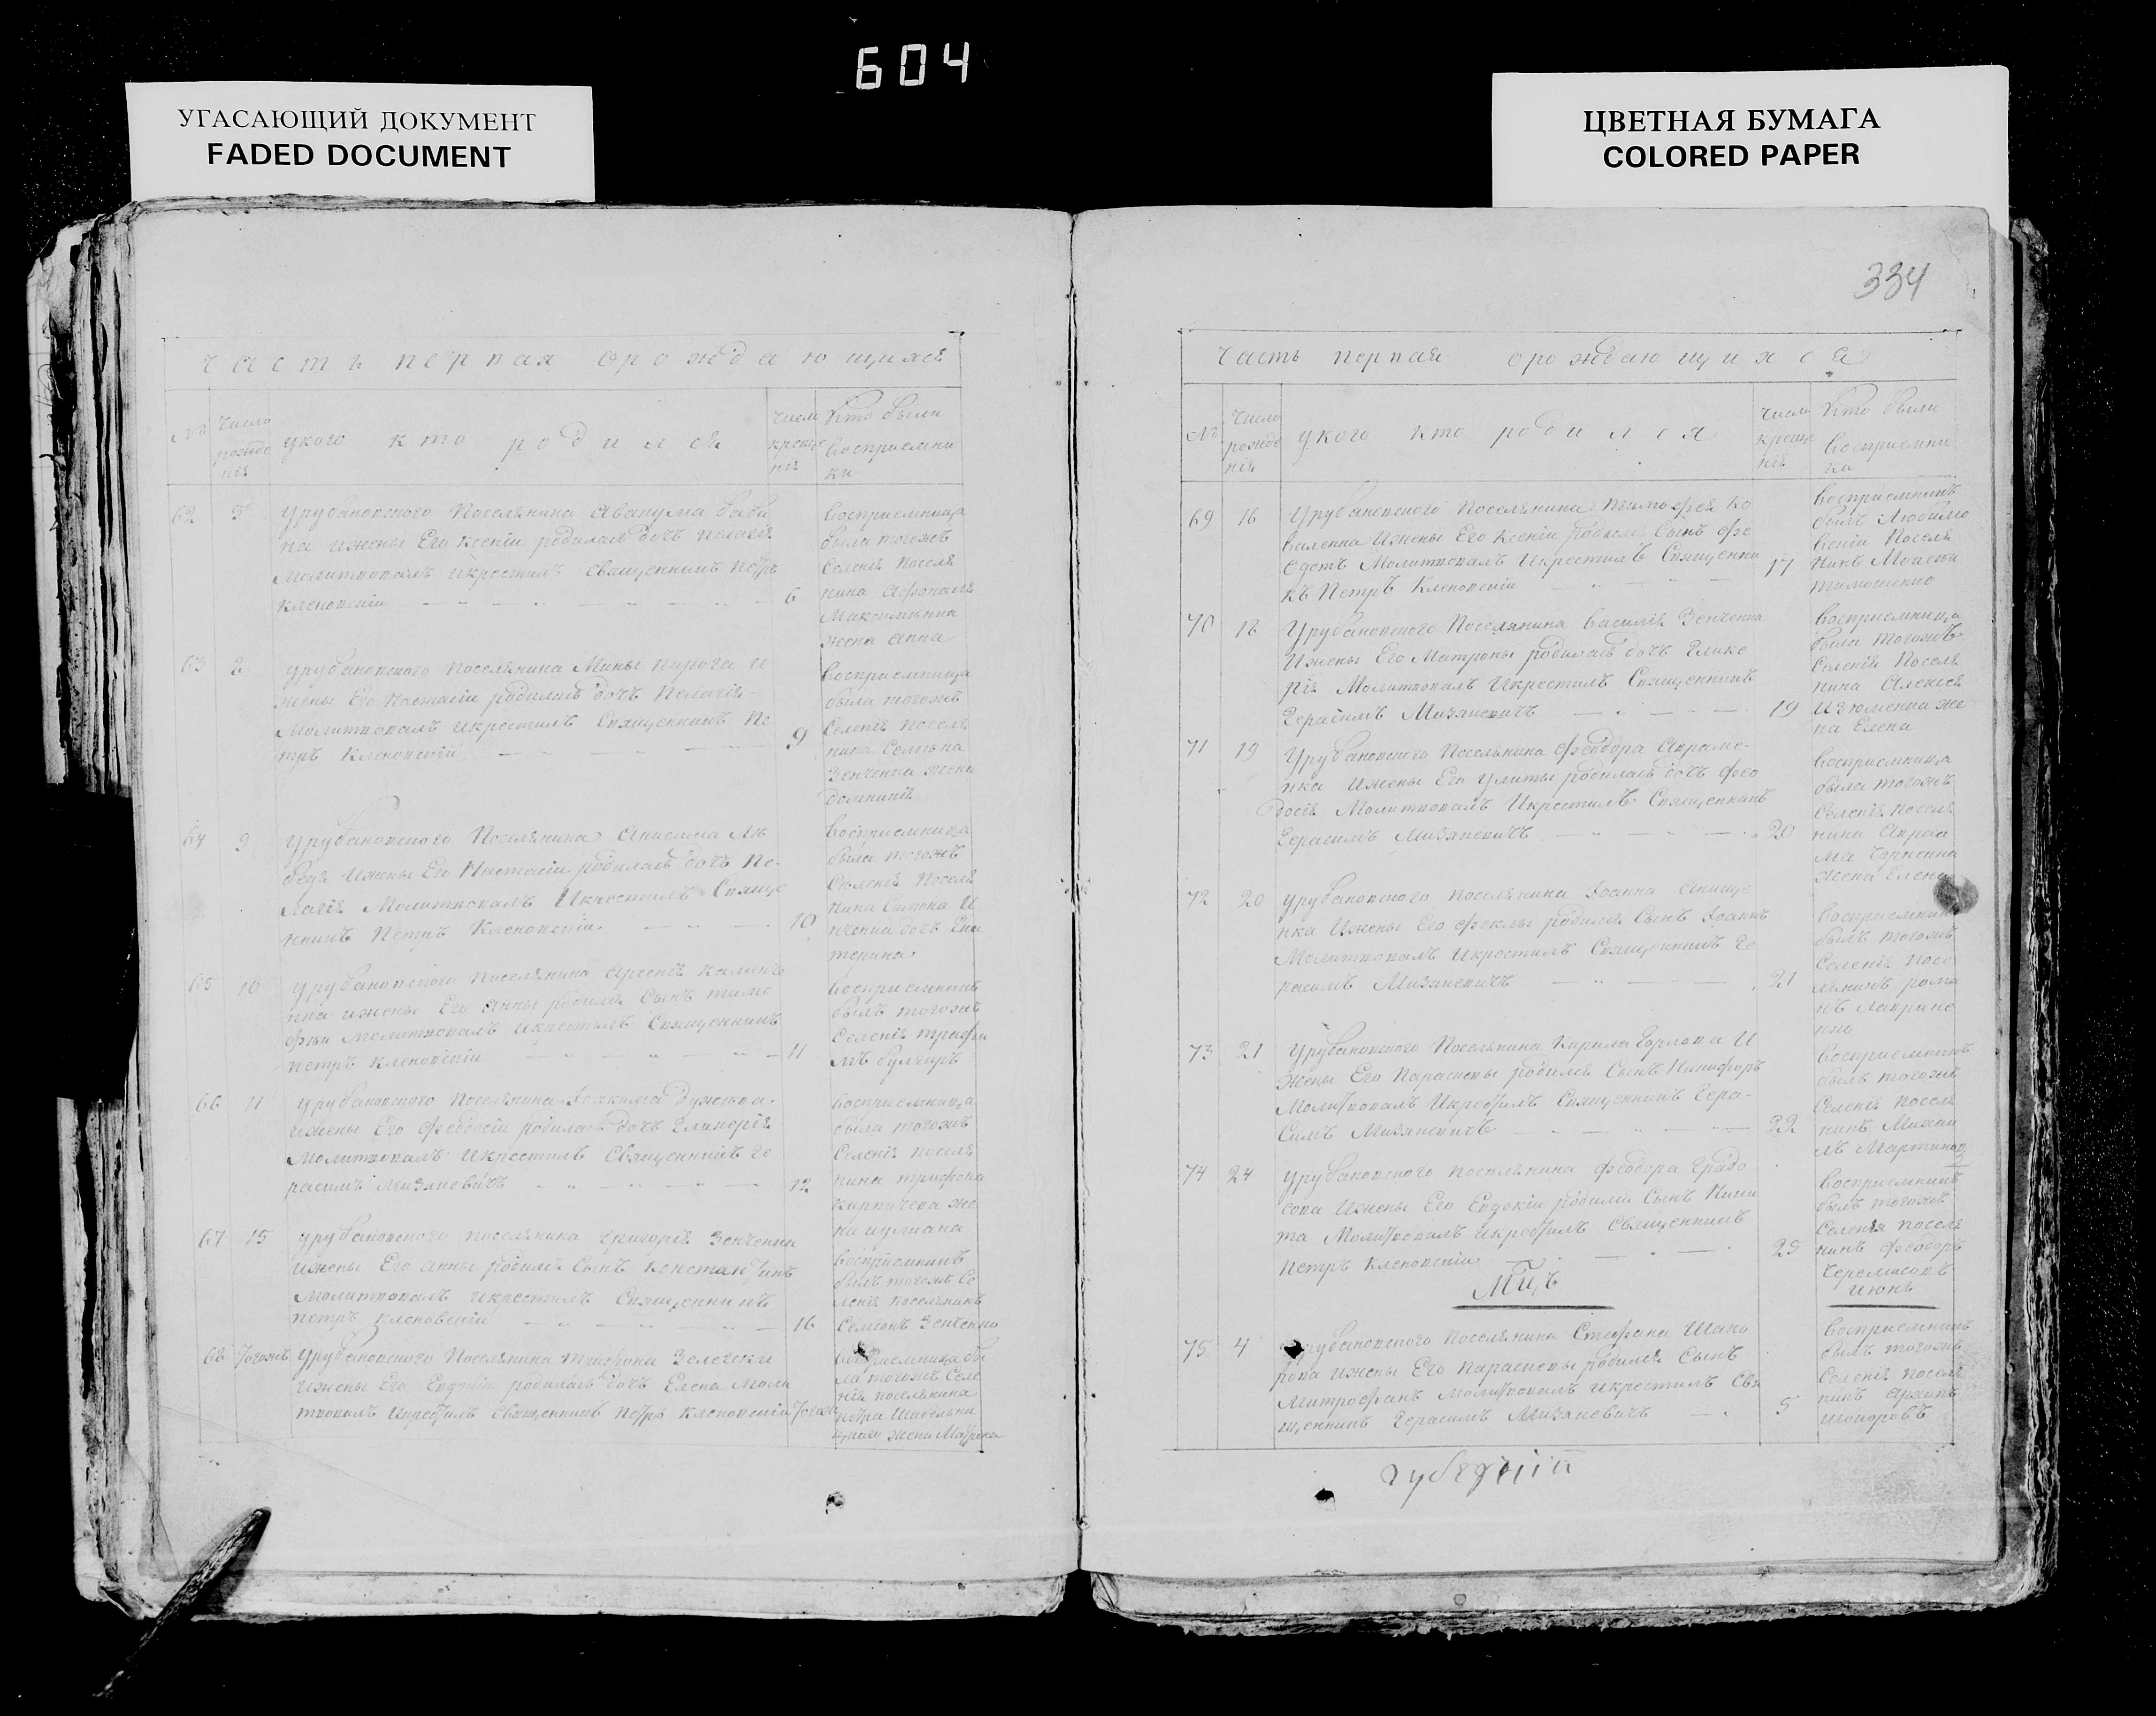 604
УГАСАЮЩИЙ ДОКУМЕНТ
FADED DOCUMENT
ЦВЕТНАЯ БУМАГА
COLORED PAPER
Часть первая орождающихся
№
Число
рожде
нія
укого кто родился
Число
креще
нія
Кто были
восприемни
ки
62 5
Урубановского Поселянина Авакума Баби
на Ижены Его Ксеніи родилась дочь Пелагія
Молитвовалъ Икрестилъ Священникъ Петръ
Кленовскіи 6
восприемница
была тогожъ
Селенія Поселя
нина Афонасія
Максименка
жена Анна
63 2
Урубановского Поселянина Мины Пирога И
жены Его Настасіи родилась дочь Пелагія
Молитвовалъ Икрестилъ Священникъ Пе
тръ Кленовскіи 9
восприемница
была тогожъ
Селенія Поселя
нина
Зенченка жена
Домникія
64 9
Урубановского Поселянина Анисима
Ижены Его Настасіи родилась дочь Пе
лагія Молитвовалъ Икрестилъ Свяще
нникъ Петръ Кленовскіи 10
восприемница
была тогожъ
Селенія Поселя
нина Симона
дочь Ека
терина
65 10
Урубановского Поселянина Арсенія Калинче
нка Ижены Его Анны родился Сынъ Тимо
феи Молитвовалъ Икрестилъ Священникъ
Петръ Кленовскіи 11
восприемникъ
былъ тогожъ
Селенія Трофи
мъ Булгаръ
66 11
Урубановского Поселянина Іоакима
Ижены Его Феодосіи родилась дочь Гликерія
Молитвовалъ Икрестилъ Священникъ Ге
расимъ Мизяневичъ 12
восприемница
была тогожъ
Селенія Поселя
нина Трифона
Кирпичева же
на Иулиана
67 15
Урубановского Поселянина Григорія Зенченка
Ижены Его Анны родился Сынъ Константинъ
Молитвовалъ Икрестилъ Священникъ
Петръ Кленовскіи 16
восприемникъ
былъ тогожъ Се
ленія Поселянинъ
Семіонъ Зенченко
68 Тогожъ
Урубановского Поселянина Трифона
Ижены Его Евдокіи родилась дочь Елена Моли
твовалъ Икрестилъ Священникъ Петръ Кленовскіи Тогожъ
восприемница бы
ла тогожъ Селе
нія Поселянина
Петра
жена Матрона
334
Часть первая орождающихся
№
Число
рожде
нія
укого кто родился
Число
креще
нія
Кто были
восприемни
ки
69 16
Урубановского Поселянина Тимофея Ко
валенка Ижены Его Ксеніи родился Сынъ Фе
одотъ Молитвовалъ Икрестилъ Священни
къ Петръ Кленовскіи 17
восприемникъ
былъ Любимо
вскіи Поселя
нинъ Моисеи
Тимошенко
70 18
Урубановского Поселянина Василія Зенченка
Ижены Его Матроны родилась дочь Глике
рія Молитвовалъ Икрестилъ Священникъ
Герасимъ Мизяневичъ 19
восприемница
была тогожъ
Селенія Поселя
нина Алексея
Изюменка же
на Елена
71 19
Урубановского Поселянина Феодора Авраме
нка Ижены Его Улиты родилась дочь Фео
досія Молитвовалъ Икрестилъ Священникъ
Герасимъ Мизяневичъ 20
восприемница
была тогожъ
Селенія Поселя
нина Авраа
ма Черненка
жена Елена
72 20
Урубановского Поселянина Іоанна Онище
нка Ижены Его Феклы родился Сынъ Іоаннъ
Молитвовалъ Икрестилъ Священникъ Ге
расимъ Мизяневичъ 21
восприемникъ
былъ тогожъ
Селенія Посе
лянинъ Рома
нъ Лаврине
нко
73 21
Урубановского Поселянина Кирила Горлова И
жены Его Параскевы родился Сынъ Никифоръ
Молитвовалъ Икрестилъ Священникъ Гера
симъ Мизяневичъ 22
восприемникъ
былъ тогожъ
Селенія Поселя
нинъ Михаи
лъ Мартинов
74 24
Урубановского Поселянина Феодора Градо
сова Ижены Его Евдокіи родился Сынъ Ники
та Молитвовалъ Икрестилъ Священникъ
Петръ Кленовскіи 25
восприемникъ
былъ тогожъ
Селенія Поселя
нинъ Феодоръ
Черемисовъ
Мцъ Июнь
75 4
Урубановского Поселянина Стефана Шако
рова Ижены Его Параскевы родился Сынъ
Митрофанъ Молитвовалъ Икрестилъ Свя
щенникъ Герасимъ Мизяневичъ 5
восприемникъ
былъ тогожъ
Селенія Поселя
нинъ Архипъ
Шокоровъ
Губерніи